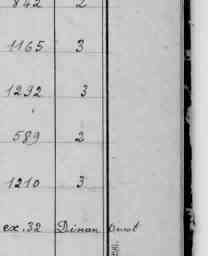 842 2
1165 3
1292 3
589 2
1210 3
ex. 32 Dinan